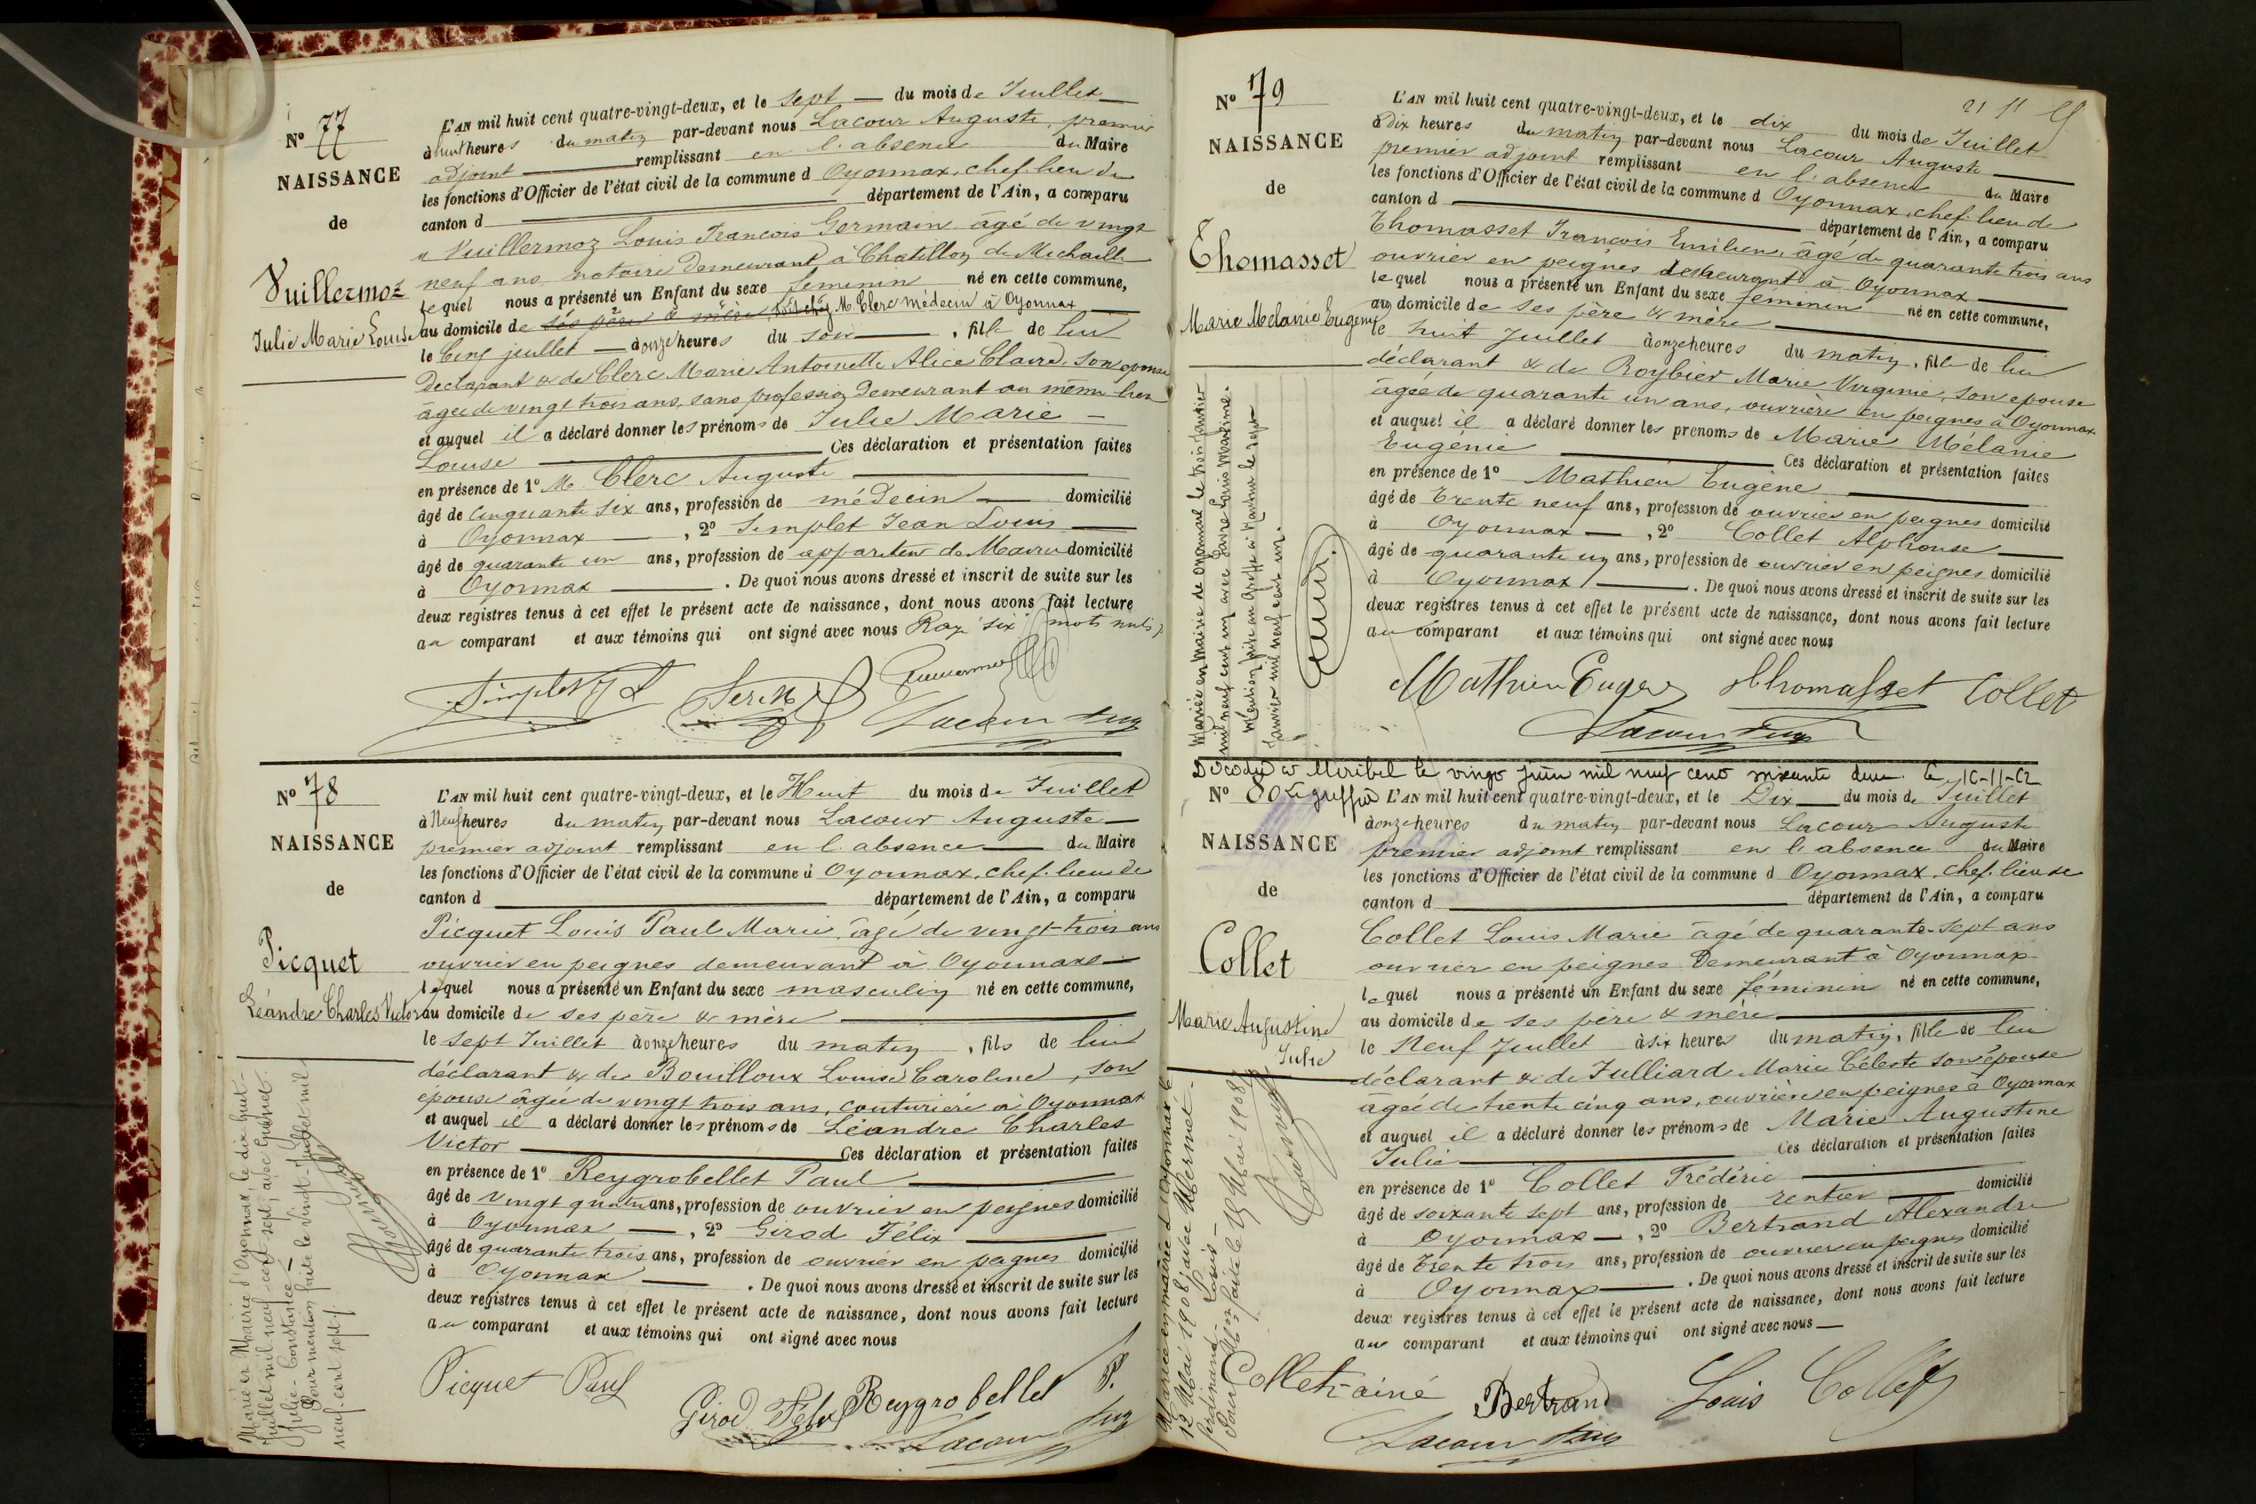 N° 77
NAISSANCE
de
Vuillermoz
Julie Marie Louise
L'AN mil huit cent quatre-vingt-deux, et le sept du mois de Juillet
à huit heures du matin par-devant nous Lacour Auguste, premier
adjoint remplissant en l'absence du Maire
les fonctions d'Officier de l'état civil de la commune d Oyonnax, chef-lieu de
canton d département de l'Ain, a comparu
Vuillermoz Louis François Germain âgé de vingt
neuf ans notaire demeurant à Chatillon de Michaille
lequel nous a présenté un Enfant du sexe féminin né en cette commune,
au domicile de ses père & mère, M. Clerc médecin à Oyonnax
le Cinq juillet à onze heures du soir, fille de lui
Déclarant & de Clerc Marie Antoinette Alice Claire, son épouse
âgée de vingt trois ans, sans profession Demeurant au même lieu
et auquel il a déclaré donner les prénoms de Julie Marie
Louise Ces déclaration et présentation faites
en présence de 1° M. Clerc Auguste
âgé de Cinquante six ans, profession de médecin domicilié
à Oyonnax, 2° Simplet Jean Louis
âgé de quarante un ans, profession de appariteur de Mairie domicilié
à Oyonnax. De quoi nous avons dressé et inscrit de suite sur les
deux registres tenus à cet effet le présent acte de naissance, dont nous avons fait lecture
au comparant et aux témoins qui ont signé avec nous Rayé six mots nuls
Simplet
Vuillermoz
Lacour Aug
N° 78
NAISSANCE
de
Picquet
Léandre Charles Victor
L'AN mil huit cent quatre-vingt-deux, et le Huit du mois de Juillet
à Neuf heures du matin par-devant nous Lacour Auguste
premier adjoint remplissant en l'absence du Maire
les fonctions d'Officier de l'état civil de la commune d Oyonnax, chef-lieu de
canton d département de l'Ain, a comparu
Picquet Louis Paul Marie, âgé de vingt-trois ans
ouvrier en peignes demeurant à Oyonnax
lequel nous a présenté un Enfant du sexe masculin né en cette commune,
au domicile de ses père & mère
le sept Juillet à onze heures du matin, fils de lui
déclarant & de Bouilloux Louise Caroline, son
épouse âgée de vingt trois ans, couturière à Oyonnax
et auquel il a déclaré donner les prénoms de Léandre Charles
Victor Ces déclaration et présentation faites
en présence de 1° Reygrobellet Paul
âgé de vingt quatre ans, profession de ouvrier en peignes domicilié
à Oyonnax, 2° Girod Félix
âgé de quarante trois ans, profession de ouvrier en peignes domicilié
à Oyonnax. De quoi nous avons dressé et inscrit de suite sur les
deux registres tenus à cet effet le présent acte de naissance, dont nous avons fait lecture
au comparant et aux témoins qui ont signé avec nous
Marié en Mairie d'Oyonnax, le dix huit
Juillet mil neuf cent sept, avec Guignet
Julie Constance
Pour mention faite le vingt Juillet mil
neuf cent sept
Picquet Paul
Girod Félix Reygrobellet P.
Lacour Aug
21 11
N° 79
NAISSANCE
de
Thomasset
Marie Mélanie Eugénie
L'AN mil huit cent quatre-vingt-deux, et le dix du mois de Juillet
à dix heures du matin par-devant nous Lacour Auguste
premier adjoint remplissant en l'absence du Maire
les fonctions d'Officier de l'état civil de la commune d Oyonnax, chef-lieu de
canton d département de l'Ain, a comparu
Thomasset François Emilien, âgé de quarante trois ans
ouvrier en peignes demeurant à Oyonnax
lequel nous a présenté un Enfant du sexe féminin né en cette commune,
au domicile de ses père & mère
le huit Juillet à onze heures du matin, fille de lui
déclarant & de Roybier Marie Virginie, son épouse
âgée de quarante un ans, ouvrière en peignes à Oyonnax
et auquel il a déclaré donner les prénoms de Marie Mélanie
Eugénie Ces déclaration et présentation faites
en présence de 1° Mathieu Eugène
âgé de trente neuf ans, profession de ouvrier en peignes domicilié
à Oyonnax, 2° Collet Alphonse
âgé de quarante un ans, profession de ouvrier en peignes domicilié
à Oyonnax. De quoi nous avons dressé et inscrit de suite sur les
deux registres tenus à cet effet le présent acte de naissance, dont nous avons fait lecture
au comparant et aux témoins qui ont signé avec nous
Mariée en Mairie de Oyonnax le trois Janvier
mil neuf cent un avec Favre Louis Maxime.
Mention faite au greffe à Nantua le sept
Janvier mil neuf cent un.
Mathieu Eugène Thomasset Collet
Lacour Aug
Décédée à Miribel le vingt juin mil neuf cent soixante deux le 16-11-62
Le greffier
N° 80
NAISSANCE
de
Collet
Marie Augustine
Julie
L'AN mil huit cent quatre-vingt-deux, et le Dix du mois de Juillet
à onze heures du matin par-devant nous Lacour Auguste
premier adjoint remplissant en l'absence du Maire
les fonctions d'Officier de l'état civil de la commune d Oyonnax, chef-lieu de
canton d département de l'Ain, a comparu
Collet Louis Marie âgé de quarante-sept ans
ouvrier en peignes Demeurant à Oyonnax
lequel nous a présenté un Enfant du sexe féminin né en cette commune,
au domicile de ses père & mère
le Neuf Juillet à six heures du matin, fille de lui
déclarant & de Julliard Marie Céleste son épouse
âgée de trente cinq ans, ouvrière en peignes à Oyonnax
et auquel il a déclaré donner les prénoms de Marie Augustine
Julie Ces déclaration et présentation faites
en présence de 1° Collet Frédéric
âgé de soixante sept ans, profession de rentier domicilié
à Oyonnax, 2° Bertrand Alexandre
âgé de trente trois ans, profession de ouvrier en peignes domicilié
à Oyonnax. De quoi nous avons dressé et inscrit de suite sur les
deux registres tenus à cet effet le présent acte de naissance, dont nous avons fait lecture
au comparant et aux témoins qui ont signé avec nous
Mariée en mairie d'Oyonnax le
12 Mai 1908, avec Mermet
Ferdinand Louis
Pour Mon faite le 15 Mai 1908
Collet-ainé Bertrand Louis Collet
Lacour Aug